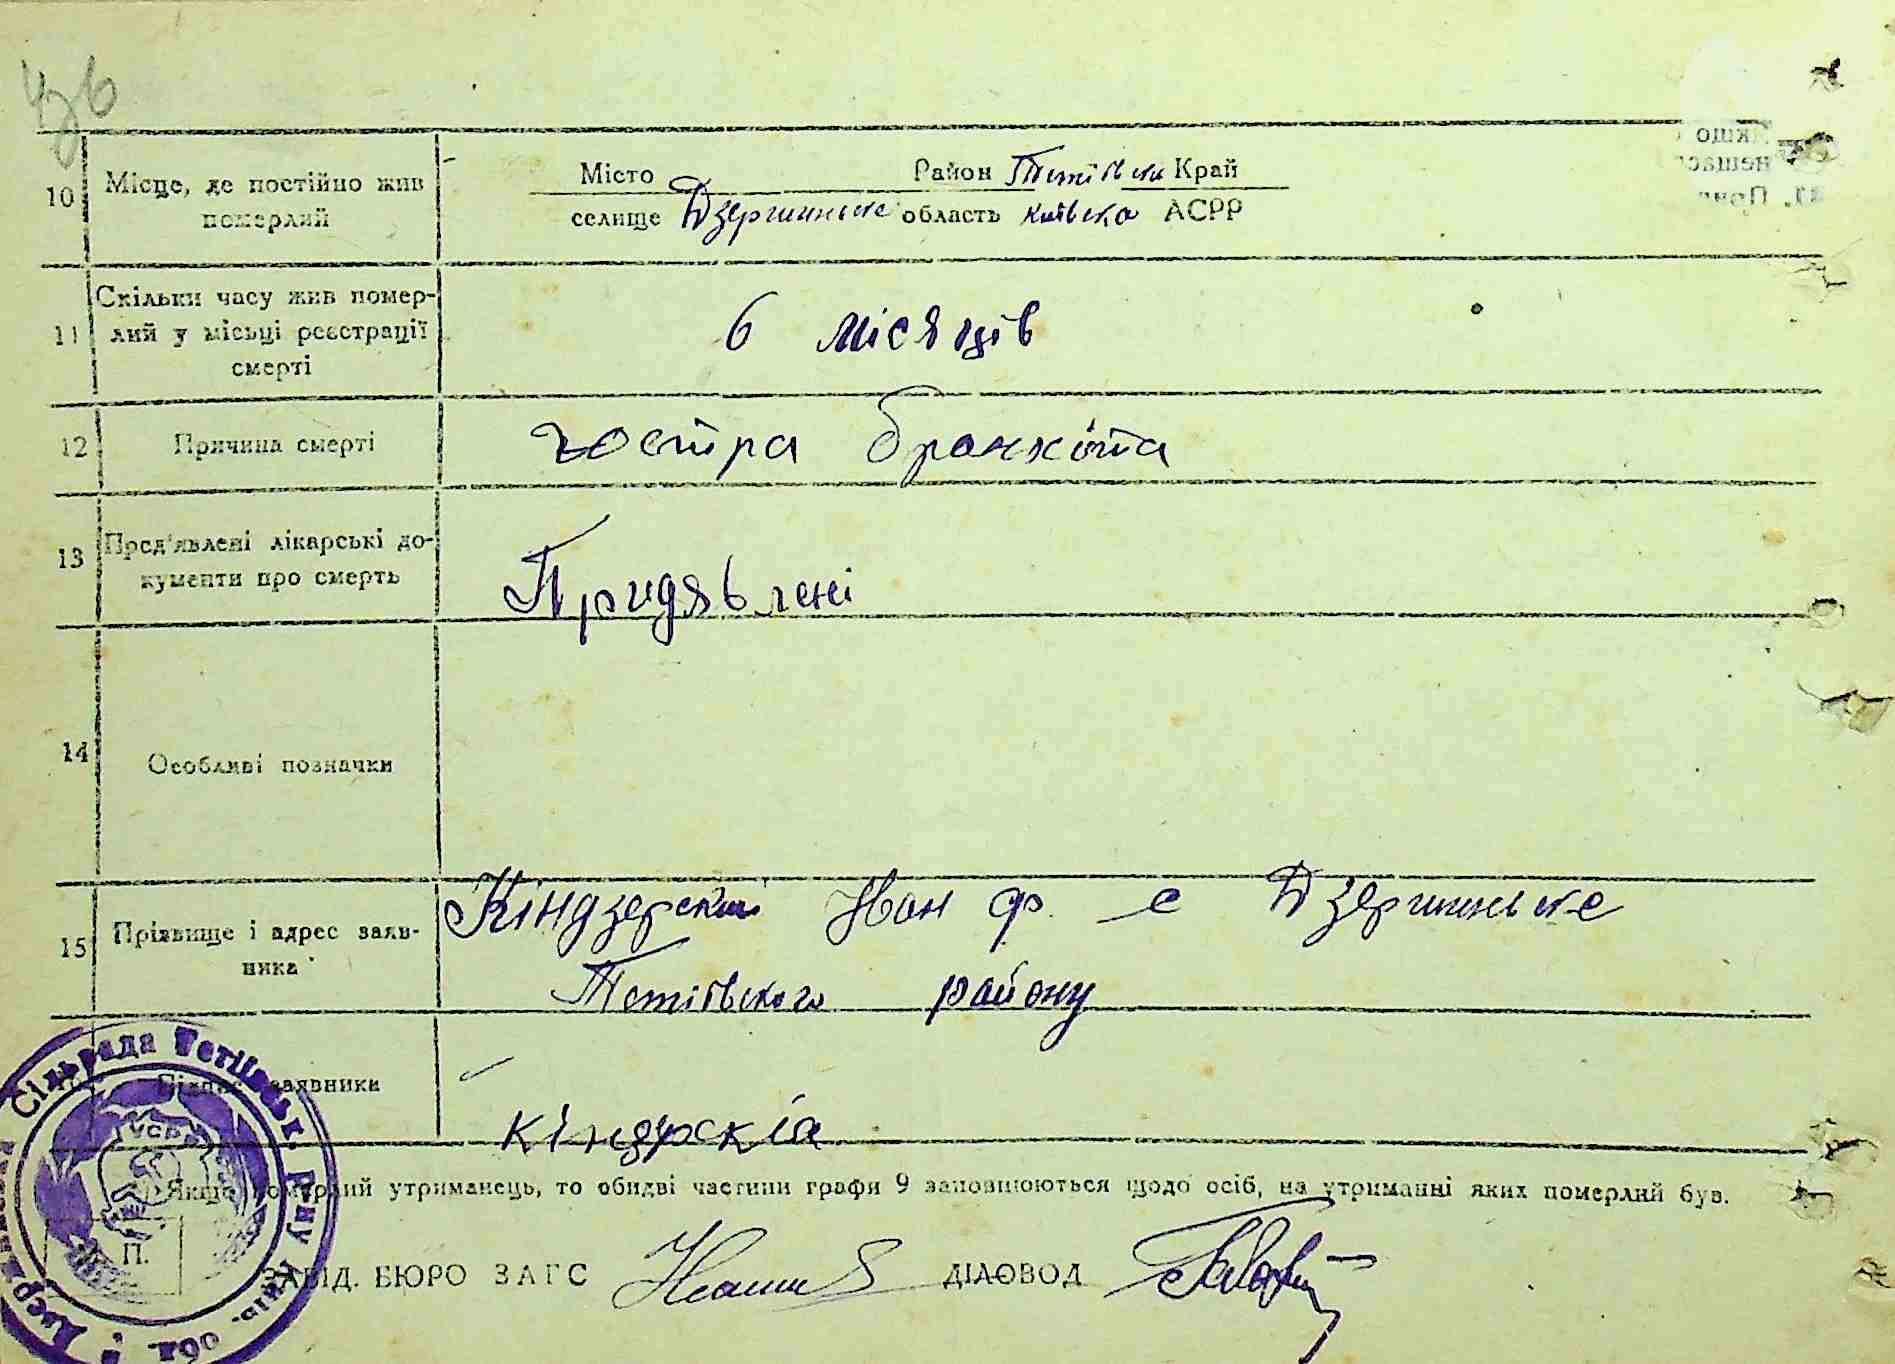 10 Місце, де постійно жив померлий
Місто Район Тетіївськ Край
селище Дзержинське область київська АСРР
11 Скільки часу жив помер-
лий у місьці реєстрації
смерті
6 місяців
12 Причина смерті
гостра бронхіта
13 Пред'явлені лікарські до-
кументи про смерть
Придявлені
14 Особливі позначки
15 Прізвище і адрес заяв-
ника
Кіндзерский Иван Ф. с Дзержинське
Тетіївського району
Підпис заявника
Якщо померлий утриманець, то обидві частини графи 9 заповнюються щодо осіб, на утриманні яких померлий був.
П.
ЗАВІД. БЮРО ЗАГС
ДІЛОВОД
Сільрада Тетіївськ. Р-ну Київ. обл.
УСРР